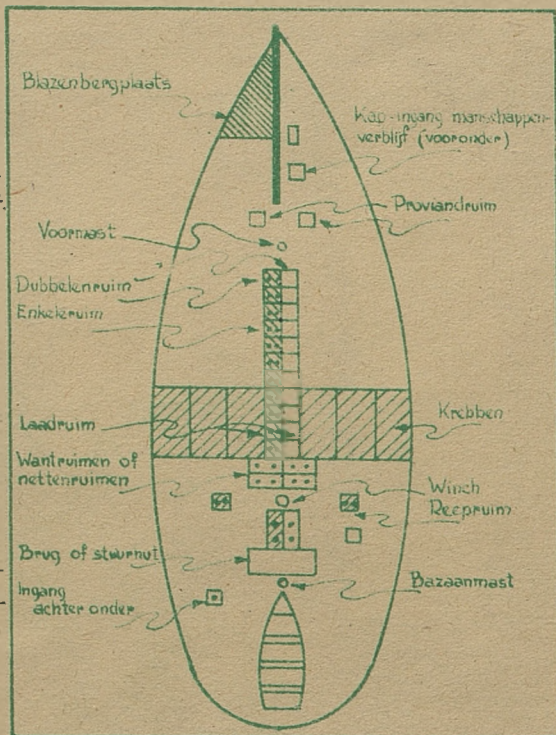 Blazenbergplaats
Kap-ingang manschappen-
verblijf (vooronder)
Proviandruim
Voormast
Dubbelenruim
Enkeleruim
Laadruim
Krebben
Wantruimen of
nettenruimen
Winch
Reepruim
Brug of stuurhut
Bazaanmast
Ingang
achter onder